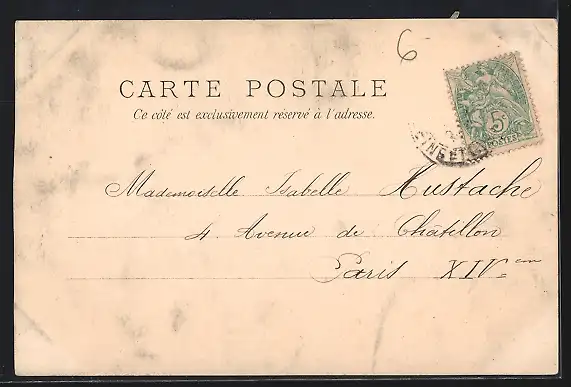 6
CARTE POSTALE
Ce côté est exclusivement réservé à l'adresse.
5
POSTES
Mademoiselle Isabelle Hustache
4 Avenue de Chatillon
Paris XIVem